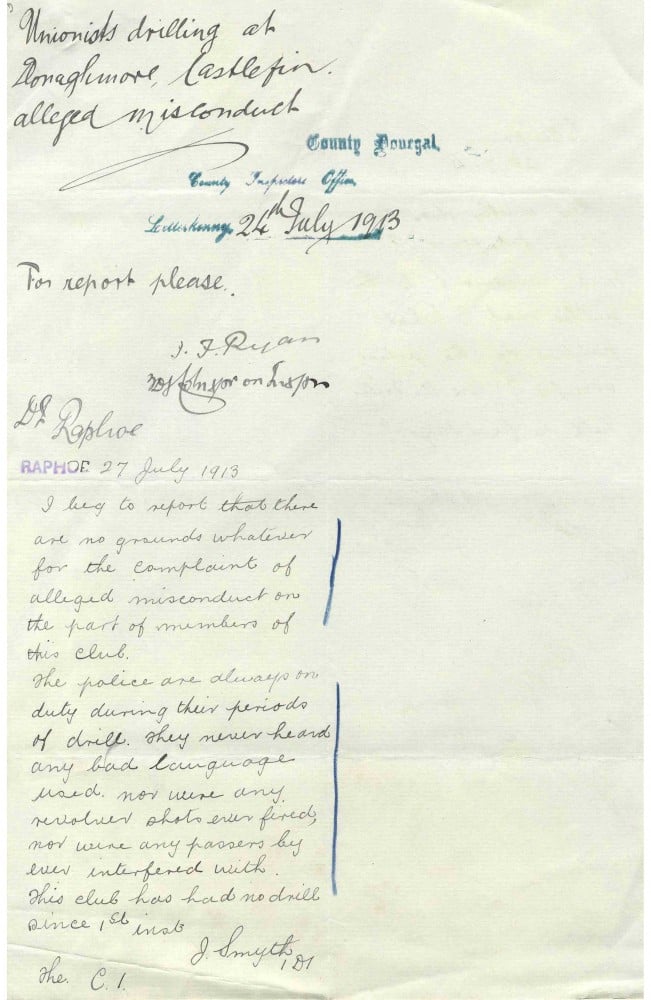 Unionists drilling at
Donaghmore, Castlefin.
alleged misconduct
County Donegal,
County Inspectors Office,
Letterkenny, 24th July 1913
For report please.
J. F. Ryan
on Inspn
DI Raphoe
RAPHOE 27 July 1913
I beg to report that there
are no grounds whatever
for the complaint of
alleged misconduct on
the part of members of
this club.
The police are always on
duty during their periods
of drill. They never heard
any bad language
used. nor were any
revolver shots ever fired,
nor were any passers by
ever interfered with.
This club has had no drill
since 1st inst
J. Smyth, DI
The. C. I.